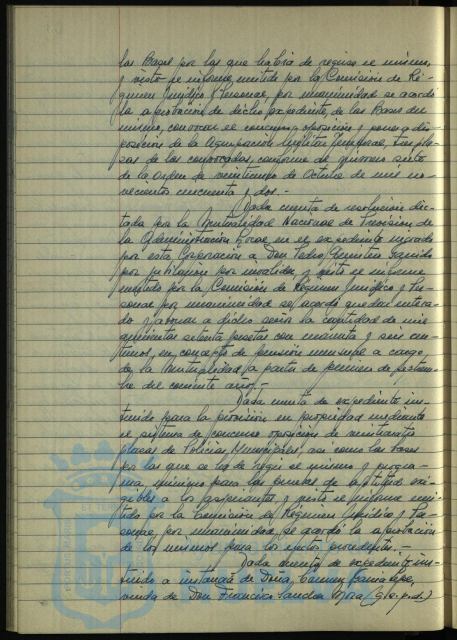 las Bases por las que habia de regirse el mismo,
y visto el informe emitido por la Comisión de Ré-
gimen Jurídico y Personal, por unanimidad se acordó
la aprobación de dicho expediente, de las Bases del
mismo, convocar el concurso oposición y poner a dis-
posición de la Agrupación Militar Temporal, tres pla-
zas de las convocadas, conforme de número sexto
de la Orden de veintiuno de Octubre de mil no-
vecientos cincuenta y dos.-
Dada cuenta de resolución dic-
tada por la Mutualidad Nacional de Previsión de
la Administración Local en el expediente incoado
por esta Corporación a Don Pedro Garrido
por jubilación por invalidez y visto el informe
emitido por la Comisión de Régimen Jurídico y Per-
sonal por unanimidad se acordó quedar entera-
do y abonar a dicho señor la cantidad de mil
quinientas setenta pesetas con cuarenta y seis cén-
timos, en concepto de pensión mensual a cargo
de la Mutualidad a partir de primero de septiem-
bre del corriente año.-
Dada cuenta de expediente ins-
truido para la provisión en propiedad mediante
el sistema de concurso oposición de veinticuatro
plazas de Policías Municipales, asi como las bases
por las que se ha de regir el mismo y progra-
ma mínimo para las pruebas de aptitud exi-
gibles a los aspirantes y visto el informe emi-
tido por la Comisión de Régimen Jurídico y Per-
sonal por unanimidad se acordó la aprobación
de los mismos para los efectos procedentes.-
Dada cuenta de expediente ins-
truido a instancia de Doña Carmen
viuda de Don Francisco Sanchez Mora (q.e.p.d.)